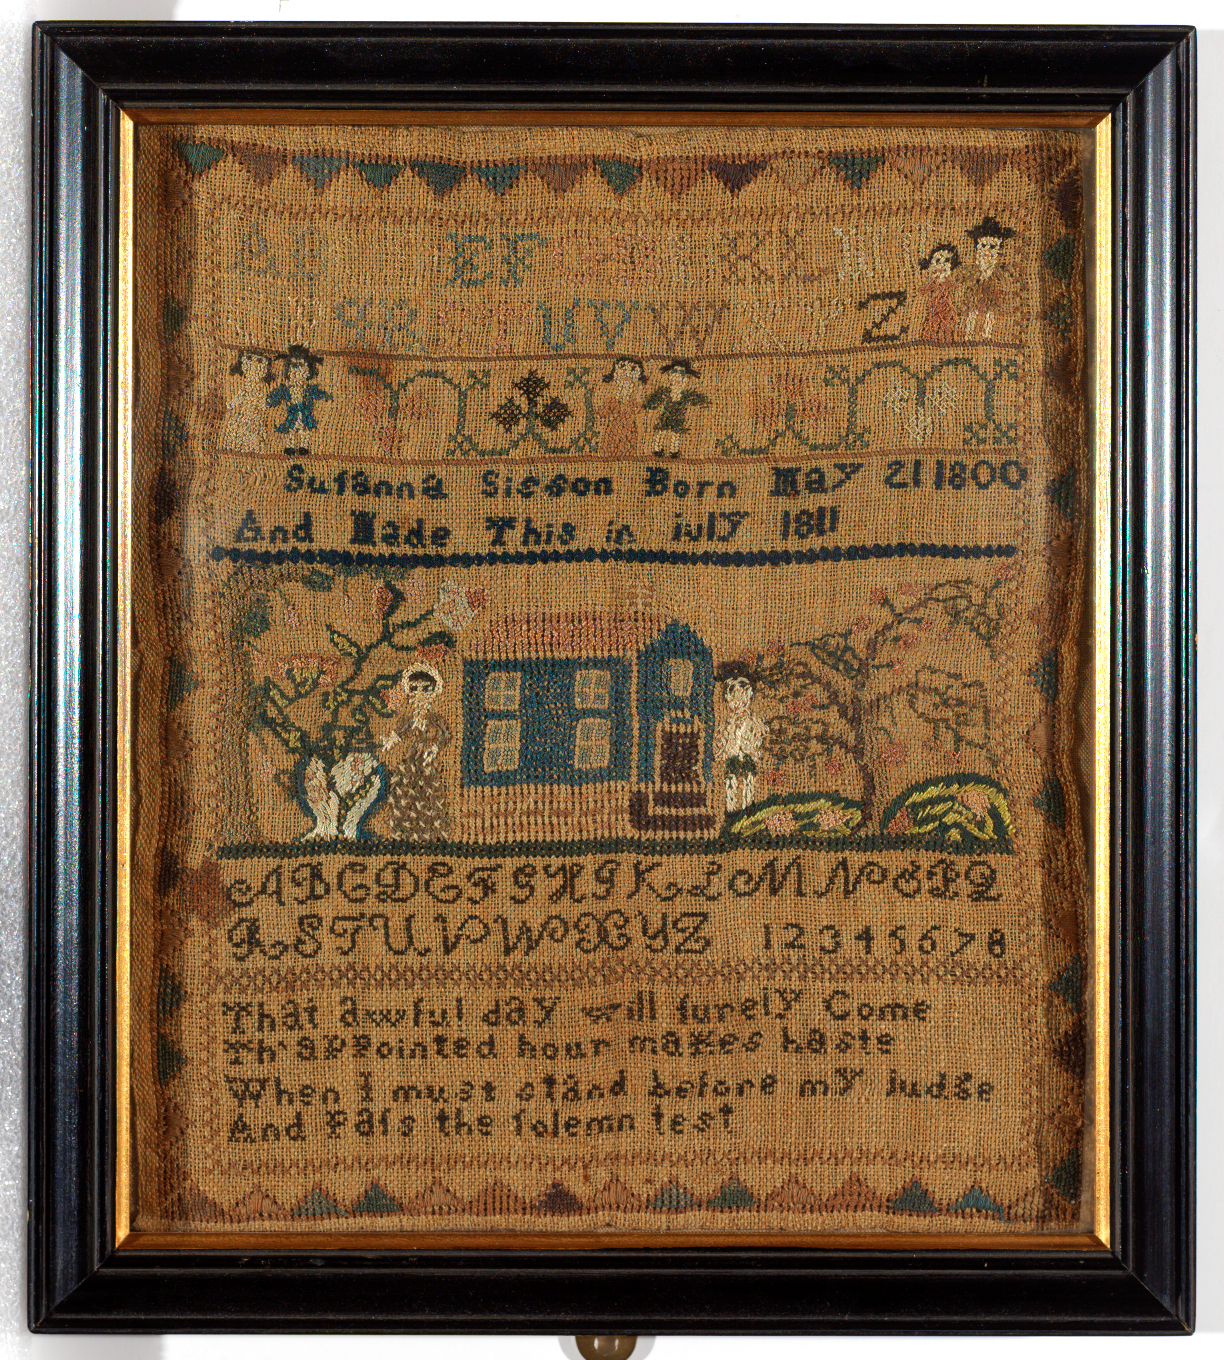 A B E F G H I K L M
Q R S T U V W X Y Z
Suſanna Sisson Born May 21 1800
And Made This in iuly 1811
A B C D E F G H I K L M N O P Q
R S T U V W X Y Z 1 2 3 4 5 6 7 8
That awful day will ſurely Come
Th'appointed hour makes haste
When I must stand before my Judge
And Paſs the ſolemn test